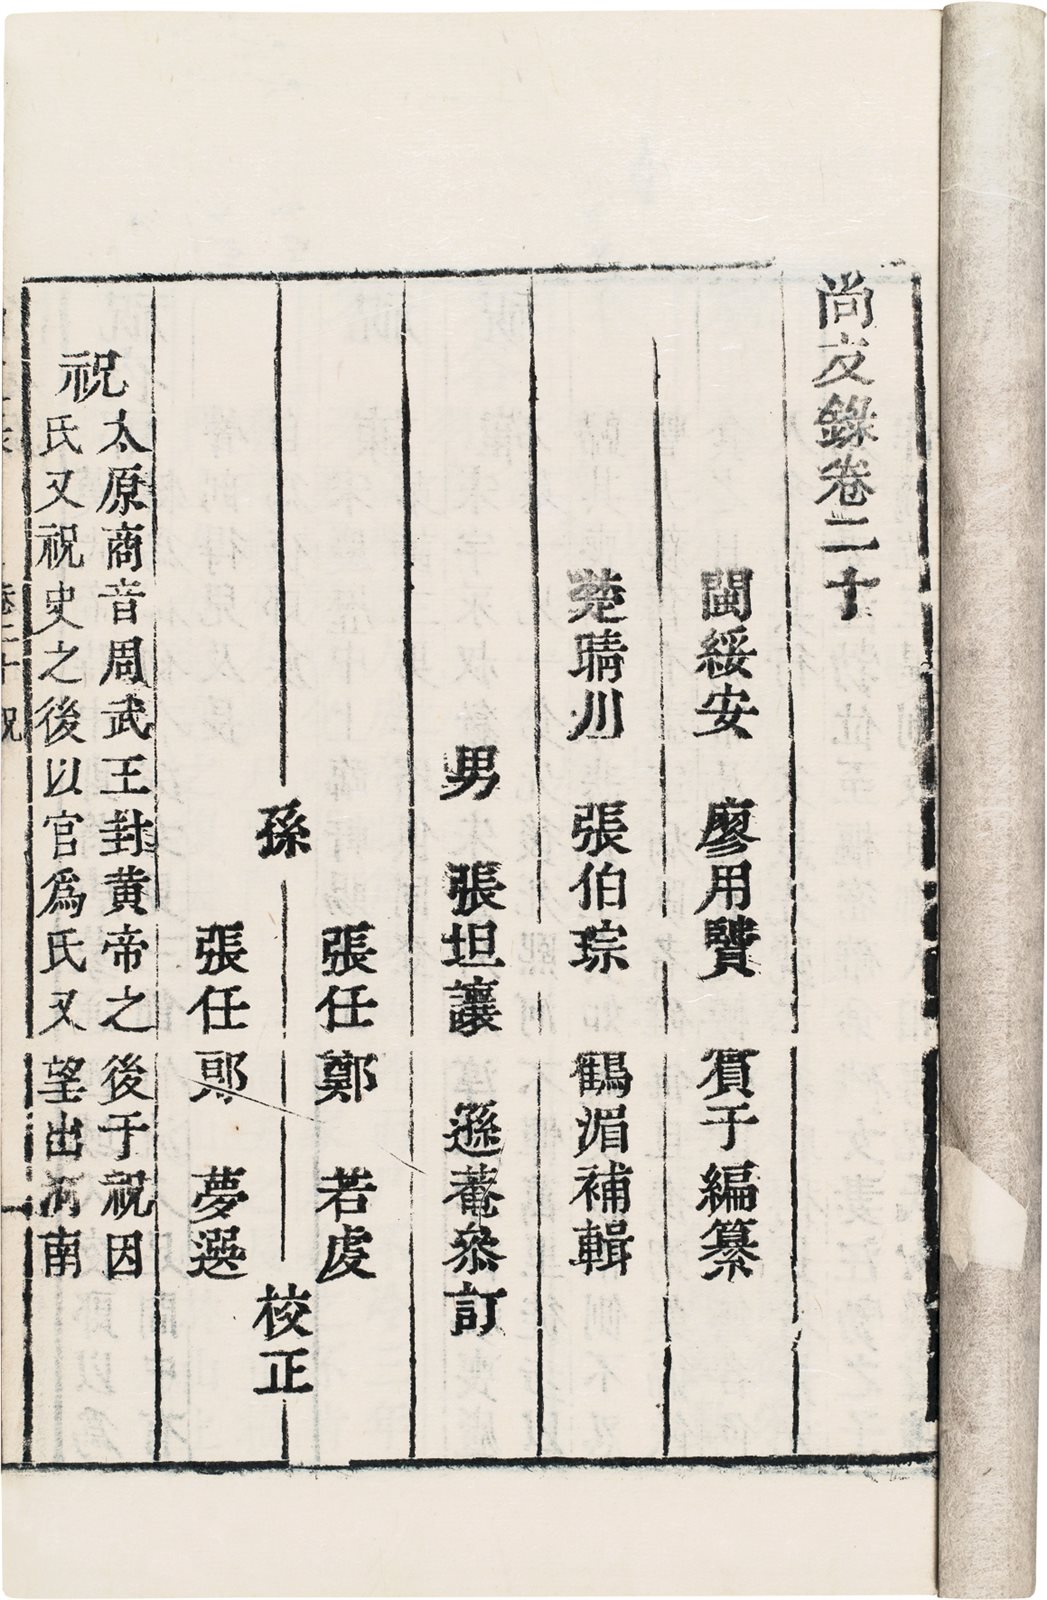 尚友錄卷二十
閩綏安　廖用賢　賓于編纂
晴川　張伯琮　鶴湄補輯
男　張坦讓　遜菴叅訂
孫
張任鄭　若虔
張任　夢選
校正
祝
太原商音周武王封黄帝之後于祝因
氏又祝史之後以官爲氏又望出河南
卷二十 祝
一